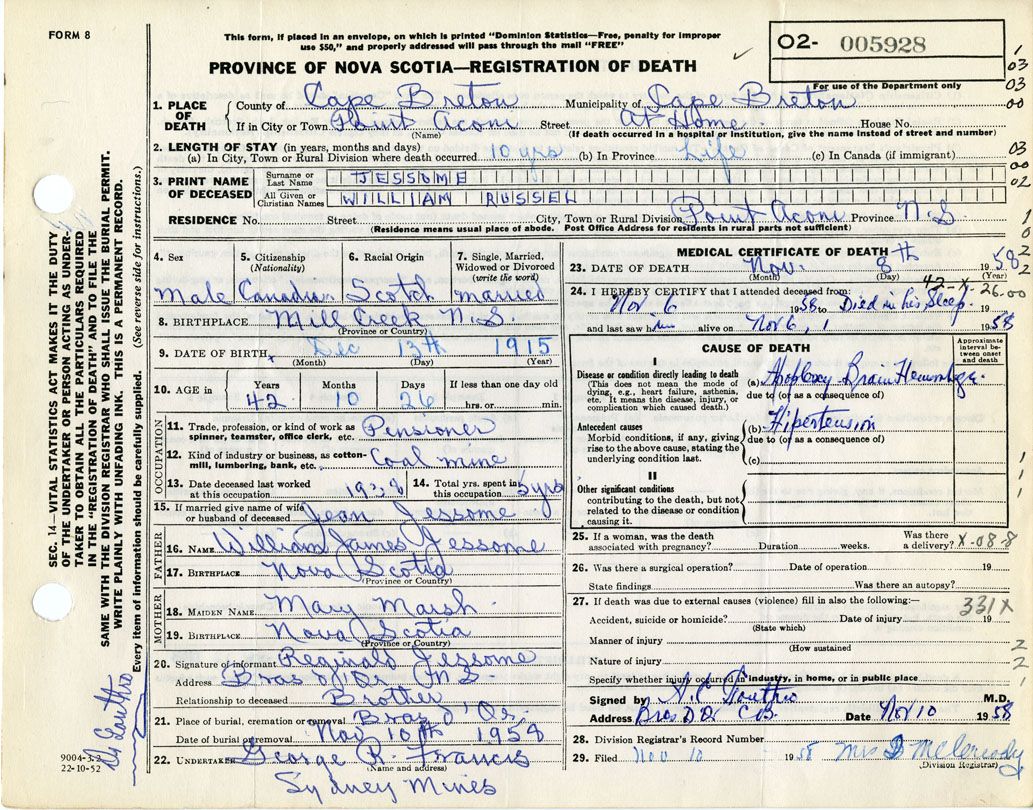 FORM 8
This form, if placed in an envelope, on which is printed "Dominion Statistics—Free, penalty for improper
use $50," and properly addressed will pass through the mail "FREE"
PROVINCE OF NOVA SCOTIA—REGISTRATION OF DEATH
02- 005928
For use of the Department only
1
03
03
00
1. PLACE OF DEATH
County of Cape Breton Municipality of Cape Breton
If in City or Town Point Aconi Street At Home House No.
(Name) (If death occurred in a hospital or institution, give the name instead of street and number)
2. LENGTH OF STAY (in years, months and days)
(a) In City, Town or Rural Division where death occurred 10 yrs (b) In Province Life (c) In Canada (if immigrant)
03
00
02
3. PRINT NAME OF DECEASED
Surname or Last Name JESSOME
All Given or Christian Names WILLIAM RUSSEL
RESIDENCE No. Street City, Town or Rural Division Point Aconi Province N.S.
(Residence means usual place of abode. Post Office Address for residents in rural parts not sufficient)
4. Sex
Male
5. Citizenship
(Nationality)
Canadian
6. Racial Origin
Scotch
7. Single, Married,
Widowed or Divorced
(write the word)
married
8. BIRTHPLACE Mill Creek N.S.
(Province or Country)
9. DATE OF BIRTH Dec 13th 1915
(Month) (Day) (Year)
10. AGE in
Years Months Days If less than one day old
42 10 26 hrs. or min.
OCCUPATION
11. Trade, profession or kind of work as
spinner, teamster, office clerk, etc. Pensioner
12. Kind of industry or business, as cotton-
mill, lumbering, bank, etc. Coal mine
13. Date deceased last worked
at this occupation 1938
14. Total yrs. spent in
this occupation 5 yrs
15. If married give name of wife
or husband of deceased Jean Jessome
FATHER
16. NAME William James Jessome
17. BIRTHPLACE Nova Scotia
(Province or Country)
MOTHER
18. MAIDEN NAME Mary Marsh
19. BIRTHPLACE Nova Scotia
(Province or Country)
20. Signature of informant Reginald Jessome
Address Bras d'Or N.S.
Relationship to deceased Brother
21. Place of burial, cremation or removal Bras d'Or
Date of burial or removal Nov 10th 1958
22. UNDERTAKER George R. Francis
(Name and address)
Sydney Mines
MEDICAL CERTIFICATE OF DEATH
23. DATE OF DEATH Nov. 8th 1958
(Month) (Day) (Year)
42-X-26.00
24. I HEREBY CERTIFY that I attended deceased from:
Nov 6 1958 to Died in his Sleep. 19
and last saw him alive on Nov 6, 1958
CAUSE OF DEATH
Approximate
interval be-
tween onset
and death
I
Disease or condition directly leading to death
(This does not mean the mode of
dying, e.g., heart failure, asthenia,
etc. It means the disease, injury, or
complication which caused death.)
(a) Apoplexy Brain Hemorrhage
due to (or as a consequence of)
Antecedent causes
Morbid conditions, if any, giving
rise to the above cause, stating the
underlying condition last.
(b) Hipertension
due to (or as a consequence of)
(c)
II
Other significant conditions
contributing to the death, but not
related to the disease or condition
causing it.
25. If a woman, was the death
associated with pregnancy? Duration weeks. Was there
a delivery?
X-08-8
26. Was there a surgical operation? Date of operation 19
State findings Was there an autopsy?
27. If death was due to external causes (violence) fill in also the following:—
331X
Accident, suicide or homicide? Date of injury 19
(State which)
Manner of injury
(How sustained
Nature of injury
Specify whether injury occurred in industry, in home, or in public place
Signed by M.D.
Address Bras D'Or C.B. Date Nov 10 1958
28. Division Registrar's Record Number
29. Filed Nov 10 1958 Mrs
(Division Registrar)
SEC. 14—VITAL STATISTICS ACT MAKES IT THE DUTY
OF THE UNDERTAKER OR PERSON ACTING AS UNDER-
TAKER TO OBTAIN ALL THE PARTICULARS REQUIRED
IN THE "REGISTRATION OF DEATH" AND TO FILE THE
SAME WITH THE DIVISION REGISTRAR WHO SHALL ISSUE THE BURIAL PERMIT.
WRITE PLAINLY WITH UNFADING INK. THIS IS A PERMANENT RECORD.
Every item of information should be carefully supplied. (See reverse side for instructions.)
22-10-52